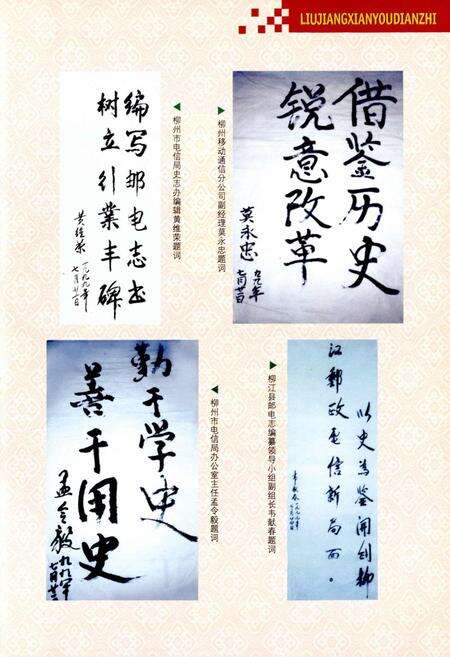 LIUJIANGXIANYOUDIANZHI
借鉴历史
锐意改革
莫永忠
九九年
柳州移动通信分公司副经理莫永忠题词
编写邮电志书
树立引業丰碑
黄维荣
一九九九年
柳州市电信局史志办编辑黄维荣题词
勤于学史
善于用史
孟令毅
九九年
柳州市电信局办公室主任孟令毅题词
以史为鉴开创柳
江郵政电信新局面。
韦献春
柳江县邮电志编纂领导小组副组长韦献春题词